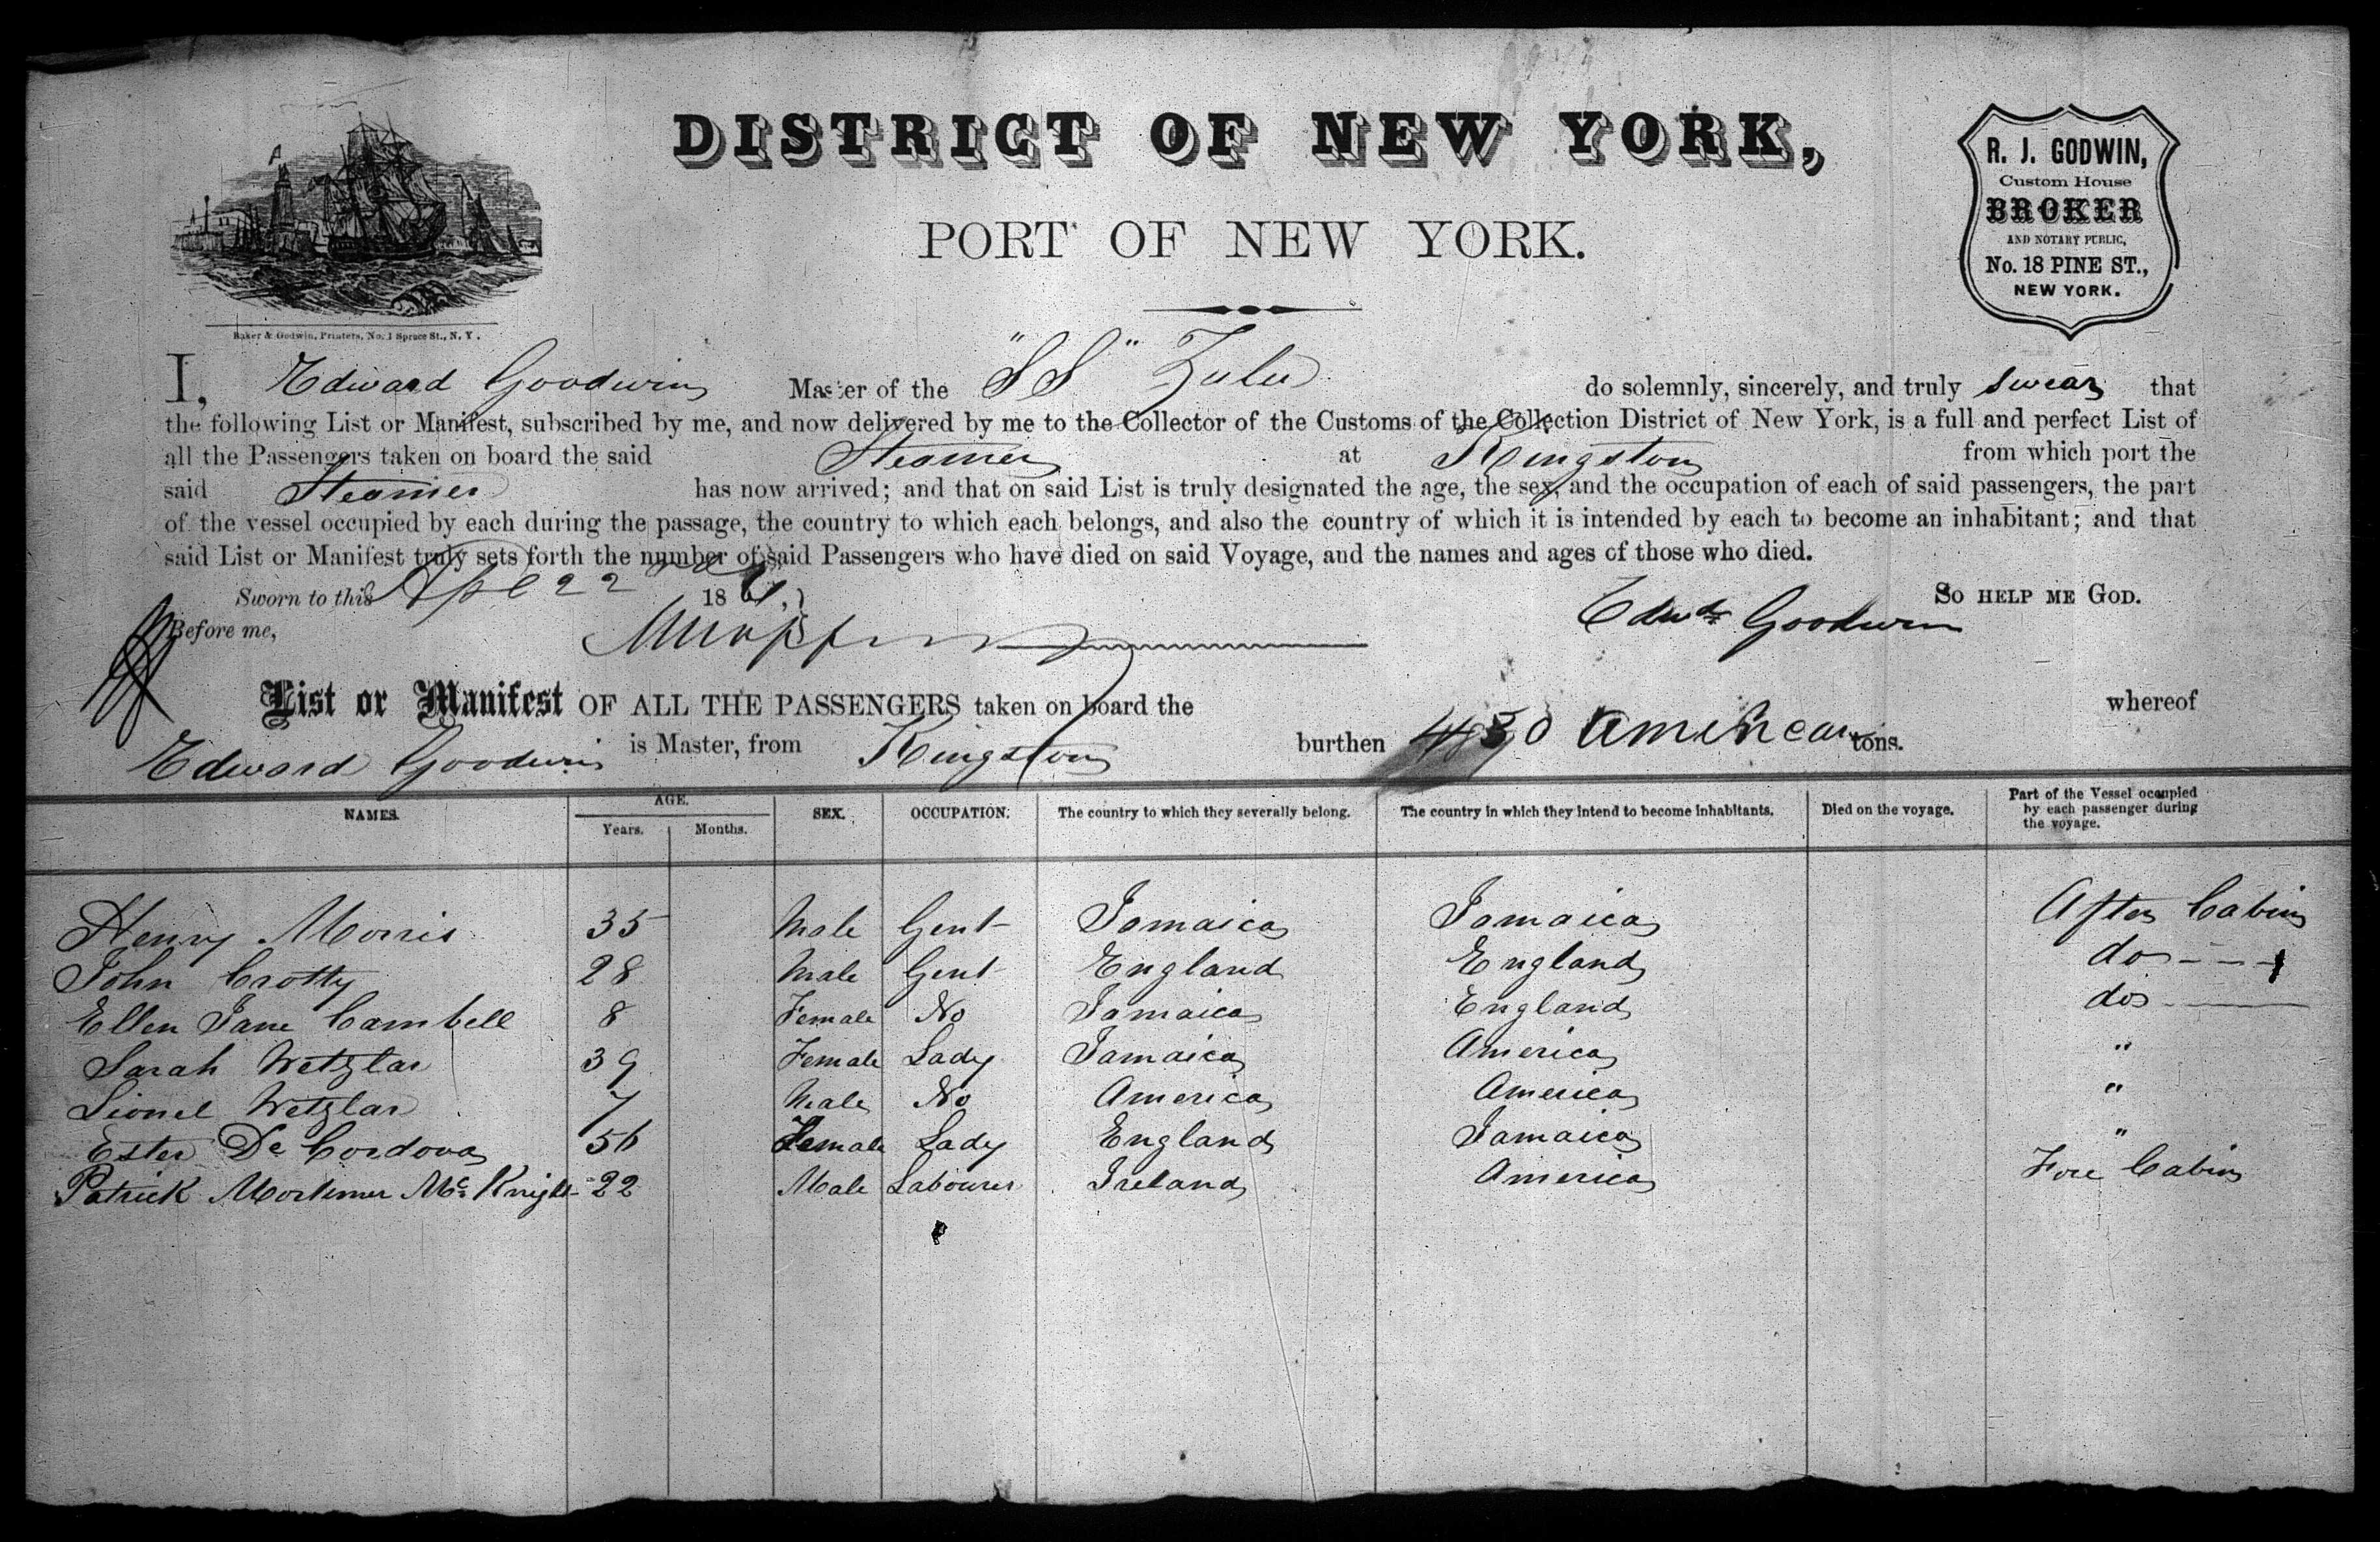 DISTRICT OF NEW YORK,
PORT OF NEW YORK.
R. J. GODWIN,
Custom House
BROKER
AND NOTARY PUBLIC,
No. 18 PINE ST.,
NEW YORK.
Baker & Godwin, Printers, No. 1 Spruce St., N. Y.
I, Edward Goodwin Master of the "SS" Zulu do solemnly, sincerely, and truly swear that
the following List or Manifest, subscribed by me, and now delivered by me to the Collector of the Customs of the Collection District of New York, is a full and perfect List of
all the Passengers taken on board the said Steamer at Kingston from which port the
said Steamer has now arrived; and that on said List is truly designated the age, the sex, and the occupation of each of said passengers, the part
of the vessel occupied by each during the passage, the country to which each belongs, and also the country of which it is intended by each to become an inhabitant; and that
said List or Manifest truly sets forth the number of said Passengers who have died on said Voyage, and the names and ages of those who died.
Sworn to this 22 186 SO HELP ME GOD.
Before me, Edwd Goodwin
List or Manifest OF ALL THE PASSENGERS taken on board the whereof
Edward Goodwin is Master, from Kingston burthen American tons.
NAMES. AGE. SEX. OCCUPATION. The country to which they severally belong. The country in which they intend to become inhabitants. Died on the voyage. Part of the Vessel occupied by each passenger during the voyage.
Years. Months.
Henry Morris 35 Male Gent Jamaica Jamaica After Cabin
John Crotty 28 Male Gent England England do - - -
Ellen Jane Cambell 8 Female No Jamaica England do
Sarah Wetzlar 39 Female Lady Jamaica America "
Lionel Wetzlar 7 Male No America America "
Ester De Cordova 56 Female Lady England Jamaica "
Patrick Mortimer McKnight 22 Male Labourer Ireland America Fore Cabin